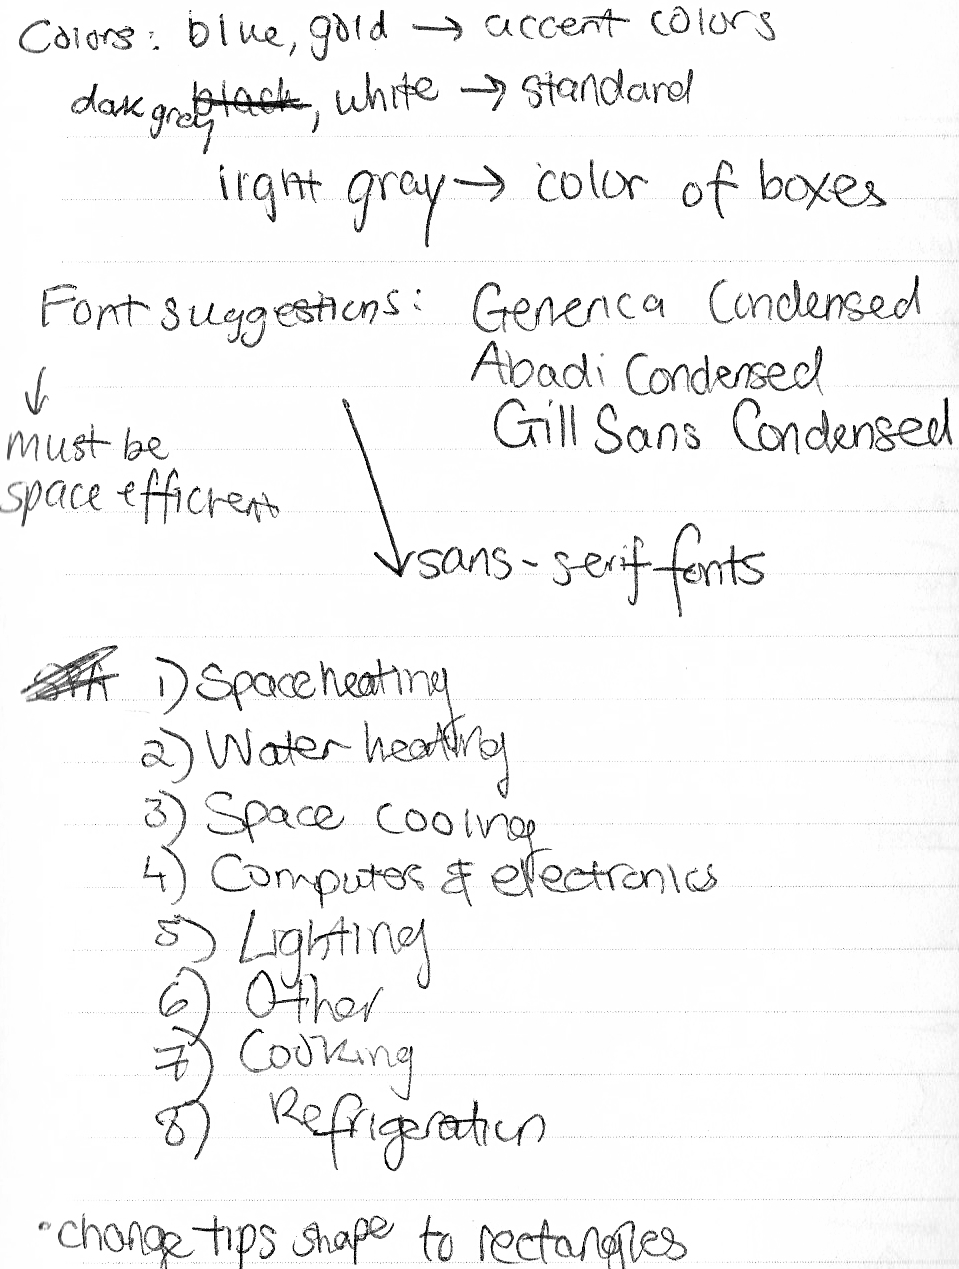 Colors: blue, gold → accent colors
dark gray black, white → standard
light gray → color of boxes
Font suggestions: Generica Condensed
Abadi Condensed
Gill Sans Condensed
↓
must be
space efficient
sans-serif fonts
1) Space heating
2) Water heating
3) Space cooling
4) Computers & electronics
5) Lighting
6) Other
7) Cooking
8) Refrigeration
•change tips shape to rectangles